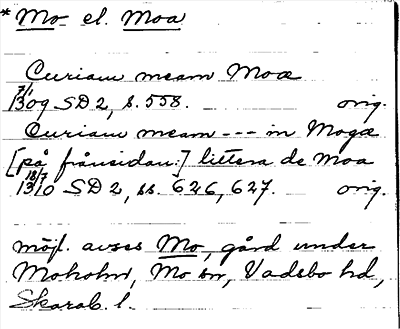 * Mo el. Moa
Curiam meam Moæ
7/1 1309 SD 2, s. 558. orig.
Curiam meam --- in Mogæ
[på frånsidan:] littera de Moa
18/7 1310 SD 2, ss. 626, 627. orig.
möjl. avses Mo, gård under
Moholm, Mo sn, Vadsbo hd,
Skarab. l.